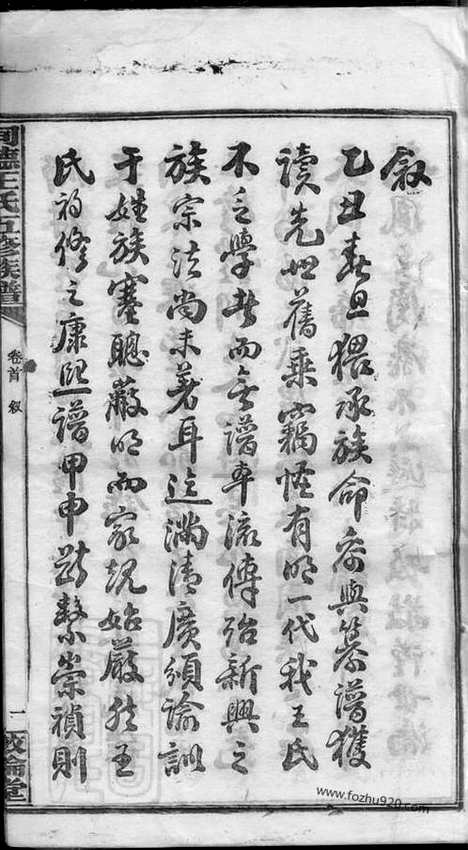 敘
乙丑春且猥承族命忝與纂譜獲
讀先世舊乘竊怪有明一代我王氏
不乏學者而無譜牒流傳殆新興之
族宗法尚未著耳迄滿清廣頒諭訓
于姓族塞聰蔽明而家規始嚴然王
氏初修之康熙譜甲申繫崇禎則
王氏五修族譜
卷首 敘
一
敦倫堂
www.fozhu920.com